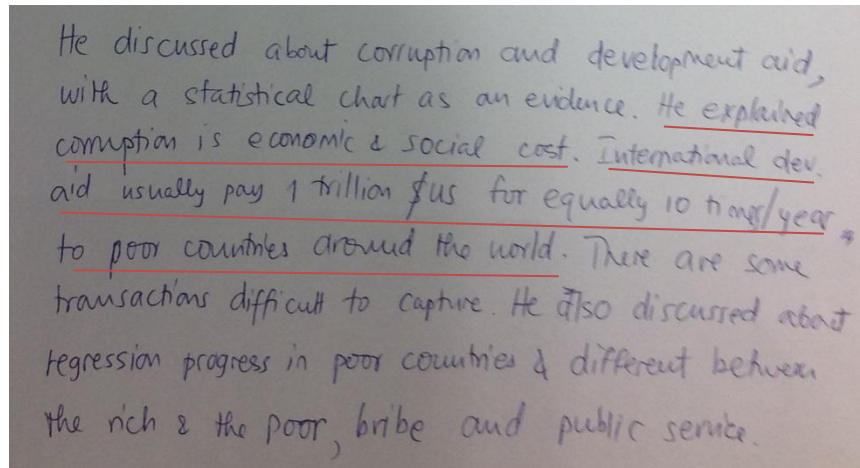 He discussed about corruption and development aid,
with a statistical chart as an evidence. He explained
corruption is economic & social cost. International dev.
aid usually pay 1 trillion $us for equally 10 times/year *
to poor countries around the world. There are some
transactions difficult to capture. He also discussed about
regression progress in poor countries & different between
the rich & the poor, bribe and public service.